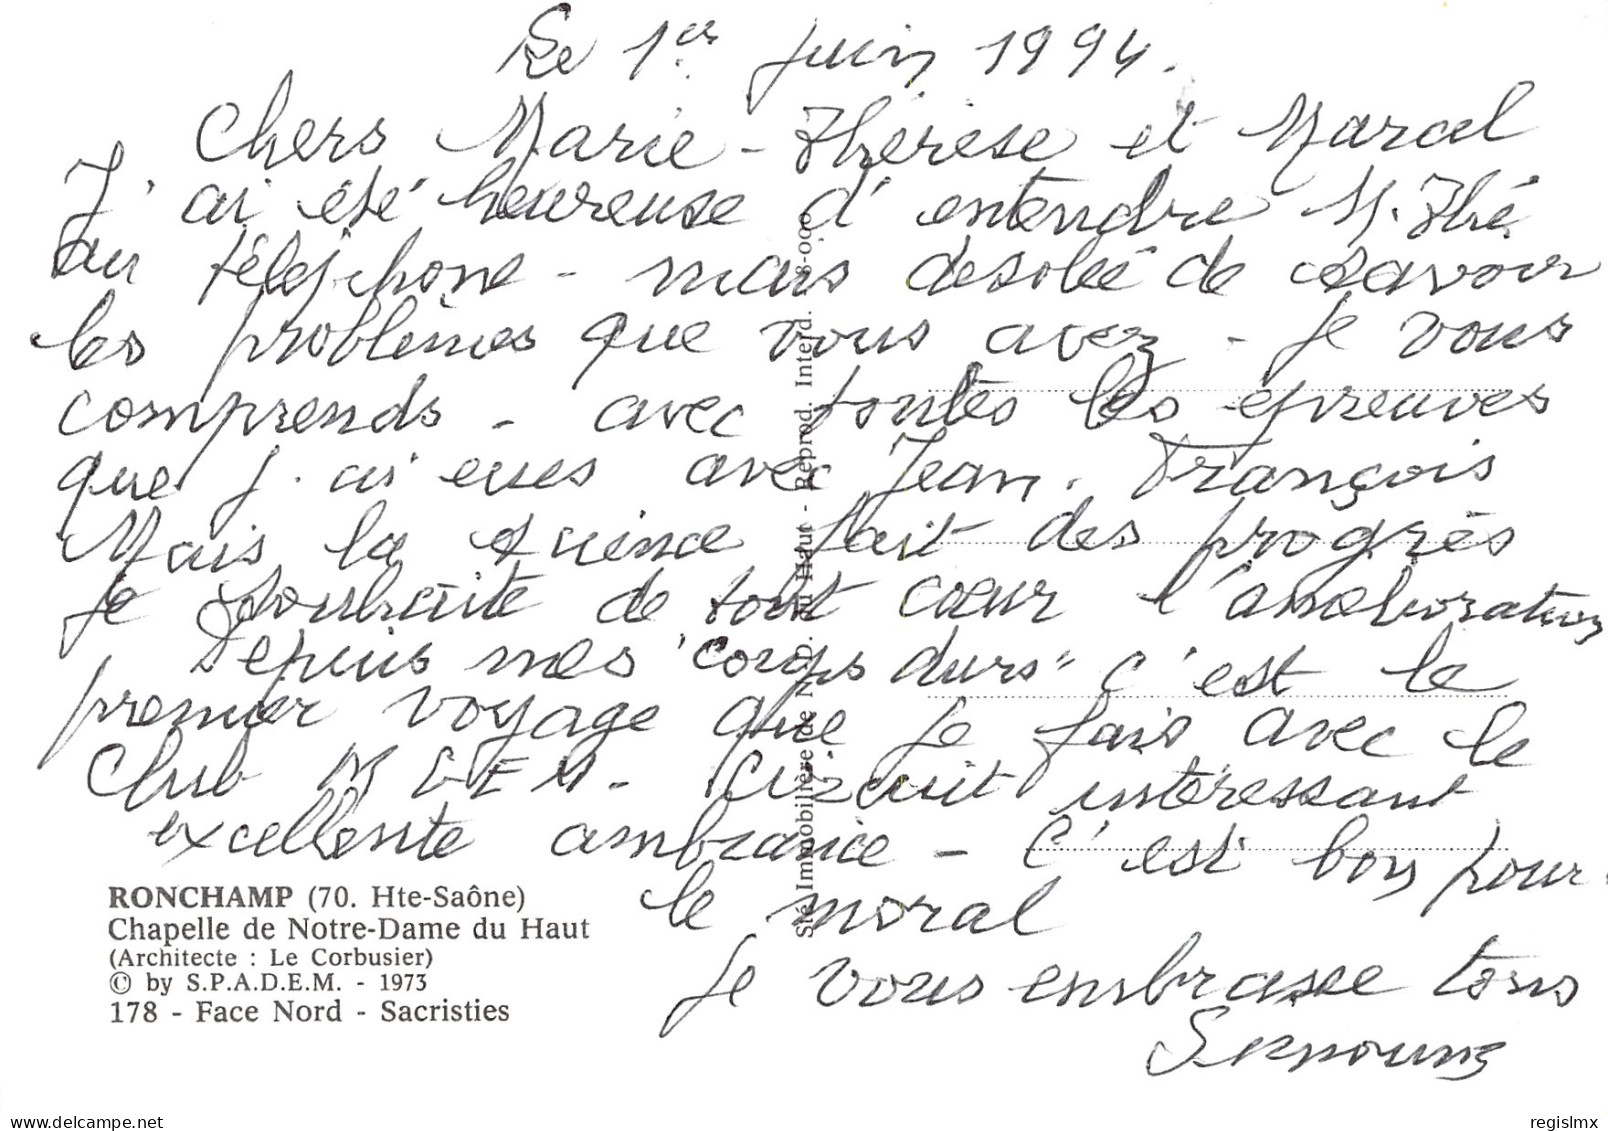 Le 1er juin 1994.
Chers Marie-Thérèse et Marcel
J'ai été heureuse d'entendre M. Thé
au téléphone - mais désolée de savoir
les problèmes que vous avez - Je vous
comprends - avec toutes les épreuves
que j'ai eues avec Jean-François
Mais la science fait des progrès
Je souhaite de tout cœur l'amélioration
Depuis mes "corps durs" c'est le
premier voyage que je fais avec le
Club - Circuit intéressant
excellente ambiance - C'est bon pour
le moral
Je vous embrasse tous
RONCHAMP (70. Hte-Saône)
Chapelle de Notre-Dame du Haut
(Architecte : Le Corbusier)
© by S.P.A.D.E.M. - 1973
178 - Face Nord - Sacristies
Sté Immobilière de N.-D. du Haut - Reprod. Interd.
regislmx
delcampe.net